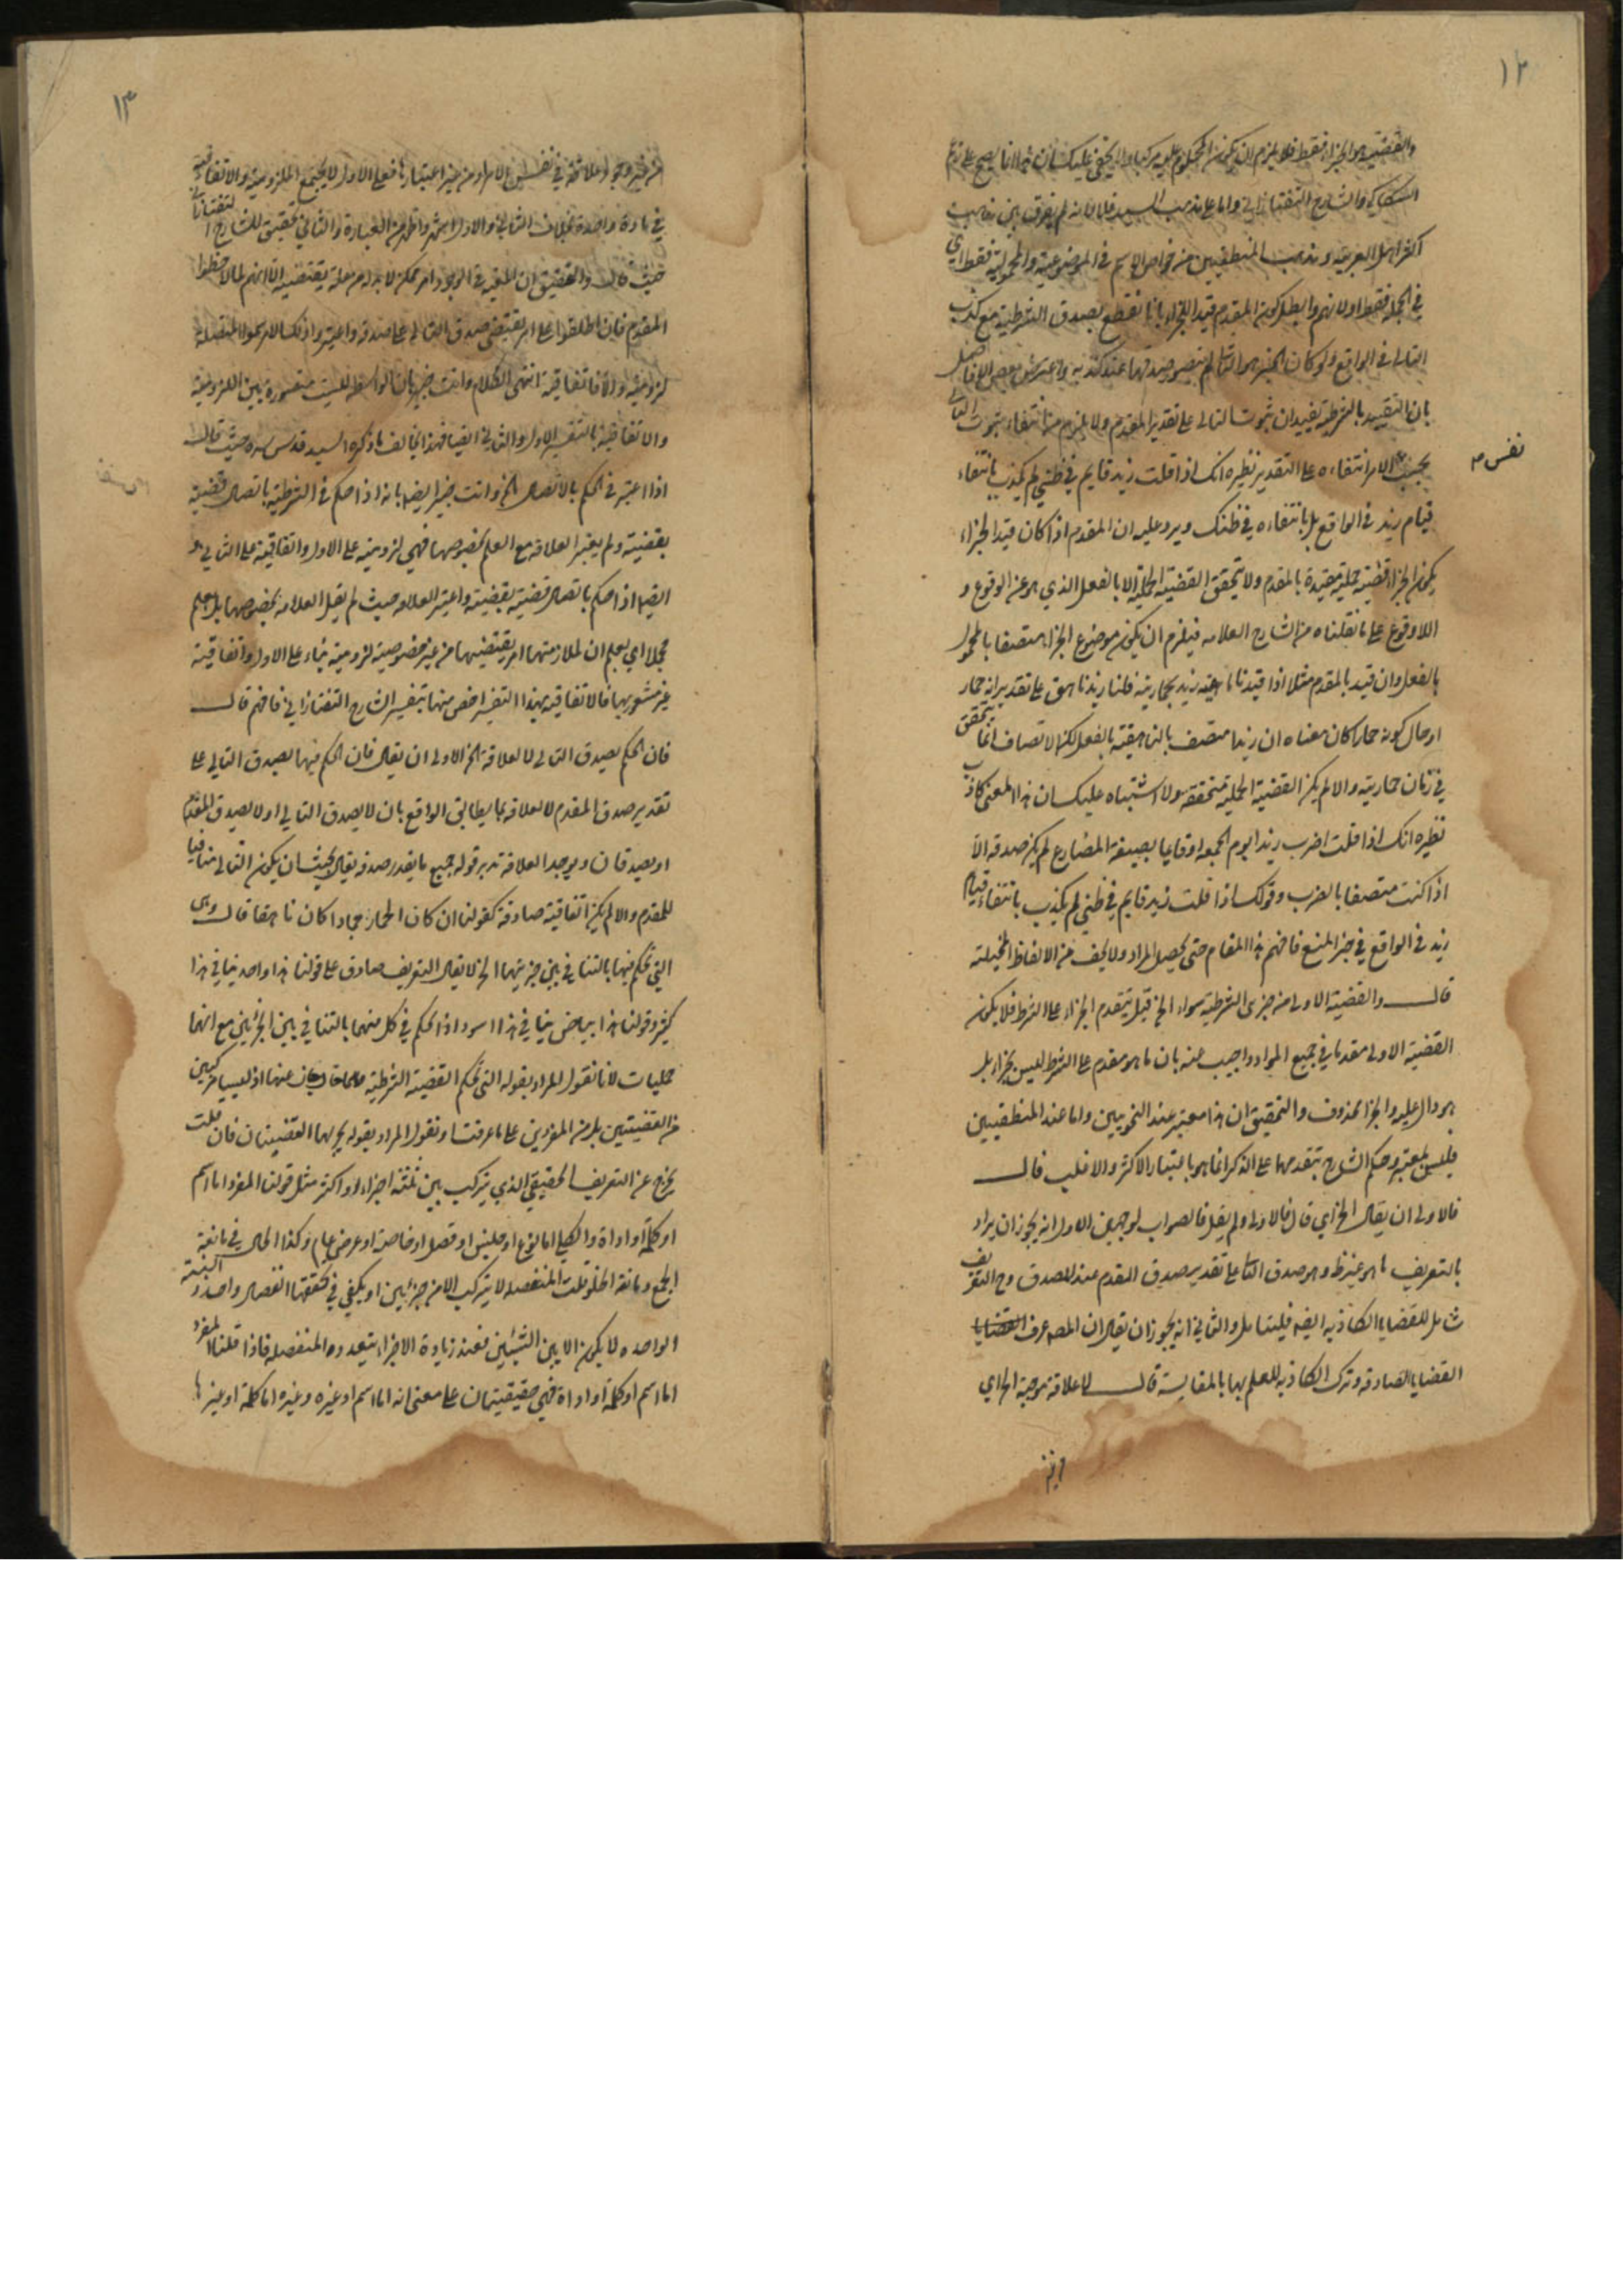 ١٢
والقضية هو الجزاء فقط فلا يلزم ان يكون المحكوم عليه مركبا ولا يخفى عليك ان هذا انما يصح على زعم
السكاكي والشارح التفتازاني واما على مذهب السيد فلا لانه لم يفرق بين مذهب
اكثر اهل العربية ومذهب المنطقيين من خواص الاسم في الموضوعية والمحمولية فقط اي
في الجملة فقط اولا نهم وابطل كون المقدم قيد الجزاء بانا نقطع بصدق الشرطية مع كذب
التالي في الواقع ولو كان الخبر هو التالي لم يتصور صدقها عند كذبه واعترض بعض الافاضل
بان التقييد بالشرطية يفيد ان ثبوت التالي على تقدير المقدم ولا يلزم من انتفاء ثبوت التالي
بحسب الامر انتفاءه على التقدير نظيره انك اذا قلت زيد قايم في ظني لم يكذب بانتفاء
نفس
قيام زيد في الواقع بل بانتفاءه في ظنك ويرد عليه ان المقدم اذا كان قيد الجزاء
يكون الجزاء قضية حملية مقيدة بالمقدم ولا تتحقق القضية الحملية الا بالفعل الذي هو عن الوقوع و
اللاوقوع على ما نقلناه من الشارح العلامه فيلزم ان يكون موضوع الجزاء متصفا بالمحمول
بالفعل وان قيد بالمقدم مثلا اذا قيدنا ناهقية زيد بحماريته قلنا زيد ناهق على تقدير انه حمار
او حال كونه حمارا كان معناه ان زيدا متصف بالناهقية بالفعل لكن الاتصاف انما يتحقق
في زمان حماريته والا لم يكن القضية الحملية متحققة ولا اشتباه عليك ان هذا المعنى كاذب
نظيره انك اذا قلت اضرب زيدا يوم الجمعه او قايما بصيغة المضارع لم يكن صدقه الا
اذا كنت متصفا بالضرب وقولك اذا قلت زيد قايم في ظني لم يكذب بانتفاء قيام
زيد في الواقع في حيز المنع فافهم هذا المقام حتى يحصل المراد ولا تخف من الالفاظ المخيلة
قال والقضية الاولى من جزئي الشرطية سواء الخ قيل يتقدم الجزاء على الشرط فلا يكون
القضية الاولى مقدما في جميع المواد واجيب عنه بان ما هو مقدم على الشرط ليس بجزاء بل
هو دال عليه والجزا محذوف والتحقيق ان هذا معتبر عند النحويين واما عند المنطقيين
فليس بمعتبر وحكم الشارح بتقدمها على الذكر انما هو باعتبار الاكثر والاغلب قال
فالاولى ان يقال الخ اي قال فالاولى ولم يقل فالصواب لوجهين الاول انه يجوز ان يراد
بالتعريف ما هو غير ظ وهو صدق التالي على تقدير صدق المقدم عند الصدق وح التعريف
شامل للقضايا الكاذبه ايضه فليتامل والثاني انه يجوز ان يقال ان المص عرف القضايا
القضايا الصادقه وترك الكاذبه للعلم بها بالمقايسة قال لا علاقة موجبة الخ اي
١٣
في مادة واحدة بخلاف الثاني والاول اشهر واظهر من العبارة والثاني تحقيق للشارح التفتازاني
حيث قال والتحقيق ان المعية في الوجود امر ممكن لا بد له من علة يقتضيه الا انهم لما لاحظوا
المقدم فان اطلقوا على امر يقتضي صدق التالي على صدقه واعتبروا ذلك الامر سموا المتصله
لزومية والا فاتفاقية انتهى الكلام وانت خبير بان الواسطه ليست متصورة بين اللزومية
والاتفاقية بالتفسير الاول والثاني ايضا فهذا يخالف ما ذكره السيد قدس سره حيث قال
اذا اعتبر في الحكم بالاتصال الخ وانت خبير ايضا بانه اذا حكم في الشرطية باتصال قضية
بقضية ولم يعتبر العلاقة مع العلم بخصوصها فهي لزومية على الاول واتفاقية على الثاني و
ايضا اذا حكم باتصال قضية بقضية واعتبر العلاقه حيث لم يعلم العلاقة بخصوصها بل يعلم
مجملا اي يعلم ان لملازمتهما امر يقتضيهما من غير خصوصيه لزومية بناء على الاول واتفاقية
غير مشعور بها فالاتفاقية بهذا التفسير اخص منها بتفسير الشارح التفتازاني فافهم قال
فان الحكم بصدق التالي لا لعلاقة الخ الاولى ان يقال فان الحكم فيها بصدق التالي على
تقدير صدق المقدم لا لعلاقه مما يطابق الواقع بان لا يصدق التالي اولا يصدق المقدم
او يصدقان ويوجد العلاقة تدبر قوله جميع ما يقدر صدقه يقال بحيث ان يكون التالي منافيا
للمقدم والا لم يكن اتفاقية صادقة كقولنا ان كان الحمار جمادا كان ناهقا قال وهي
التي تحكم فيها بالتنافي بين جزئيهما الخ لا يقال التعريف صادق على قولنا هذا واحد ينافي هذا
كثير وقولنا هذا بياض ينافي هذا اسود اذ الحكم في كل منهما بالتنافي بين الجزئين مع انهما
حمليات لانا نقول المراد بقوله التي تحكم القضية الشرطية خارجان عنها اذ ليسا مركبين
من القضيتين بل من المفردين على ما عرفت او نقول المراد بقوله جزئيها القضيتان فان قلت
يخرج عن التعريف الحقيقي الذي يتركب بين ثلثة اجزاء او اكثر مثل قولنا المفرد اما اسم
او كلمة او اداة والكلي اما نوع او جنس او فصل او خاصة او عرض عام وكذا الحال في مانعة
الجمع ومانعه الخلو قلت المنفصله لا يتركب الا من جزئين او يكفي في تحققها انفصال واحد و النسبة
الواحده لا يكون الا بين الشيئين فعند زيادة الاجزاء يتعدد المنفصله فاذا قلنا المفرد
اما اسم او كلمة او اداة فهي حقيقيتان على معنى انه اما اسم او غيره وغيره اما كلمة او غيرها